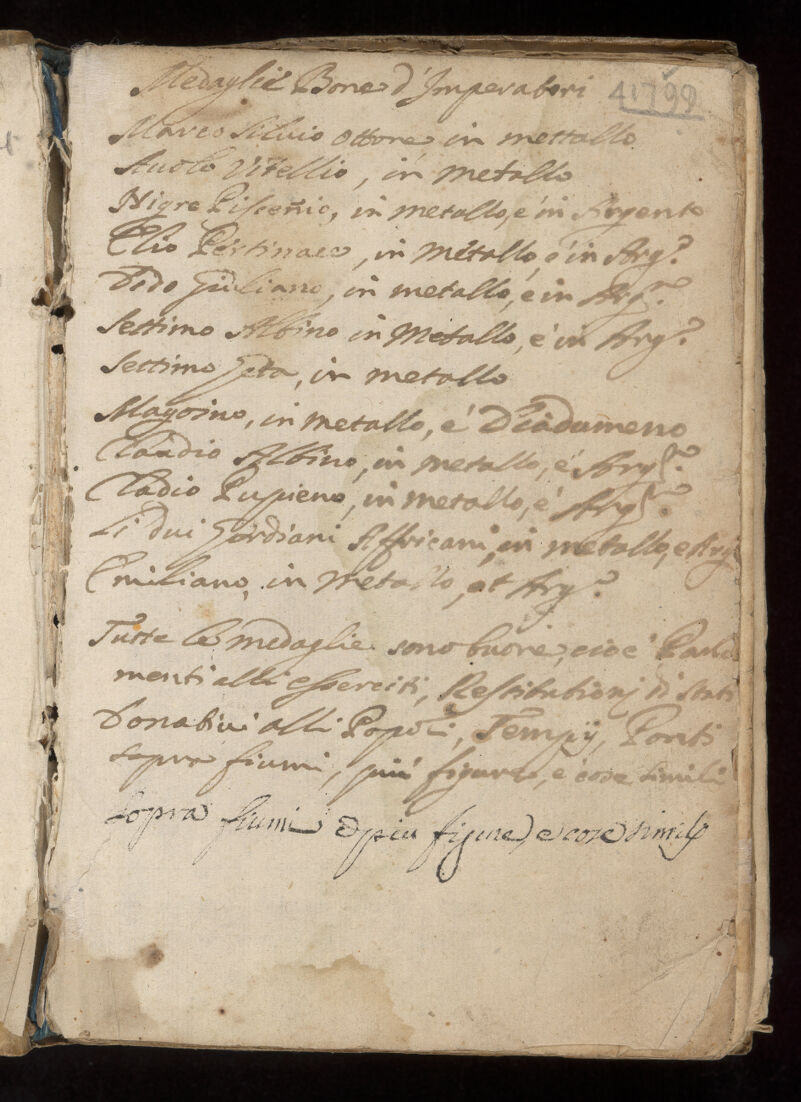 Medaglie Bone d'Imperatori
41799
Marco Silvio Ottone in mettallo
Auolo Vitellio, in metallo
Nigro Piscenio, in metallo, é in Argento
Elio Pertinace, in metallo, é in Arg.º
Dido Juliano, in metallo, é in Arg.º
Settimo Albino in Metallo, é in Arg.º
Settimo Geta, in metallo
Magrino, in metallo, é Diadumeno
Claudio Albino, in metallo, é Arg.º
Cladio Pupieno, in metallo, é Arg.º
Li dui Gordiani Affricani, in metallo, e Arg
Emiliano, in metallo, et Arg.º
Tutte le medaglie sono buone, cioé Parla
menti alli esserciti, Restitutionj di stati
Donativi alli Popoli, Tempij, Ponti
sopra fiumi, piú figure, é cose simili
sopra fiumi piu figure, e cose simili